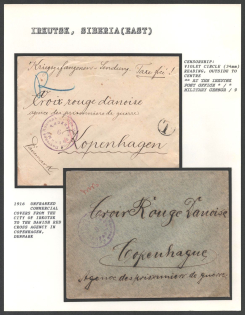 IRKUTSK, SIBERIA(EAST)
CENSORSHIP:
VIOLET CIRCLE (34mm)
READING, OUTSIDE TO
CENTER
** AT THE IRKUTSK
POST OFFICE * / *
MILITARY CENSOR / 8
Kriegsgefangenen Sendung Taxe frei!
Croix rouge danoise
agence des prisonniers de guerre
Kopenhagen
Danemark
1916 UNFRANKED
COMMERCIAL
COVERS FROM THE
CITY OF IRKUTSK
TO THE DANISH RED
CROSS AGENCY IN
COPENHAGEN,
DENMARK
Croix Rouge Danoise
Copenhague
Agence des prisonniers de guerre